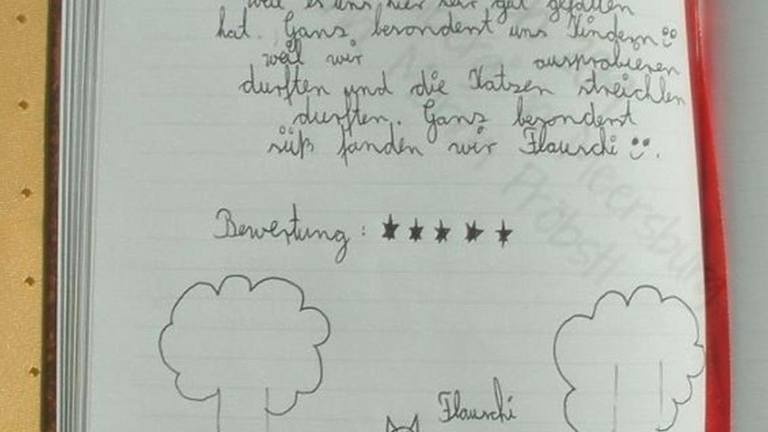 weil es uns hier sehr gut gefallen
hat. Ganz besondent uns Kindern
weil wir ausprobieren
durften und die Katzen streichlen
durften. Ganz besondent
süß fanden wir Flauschi
Bewertung: ★★★★★
Flauschi